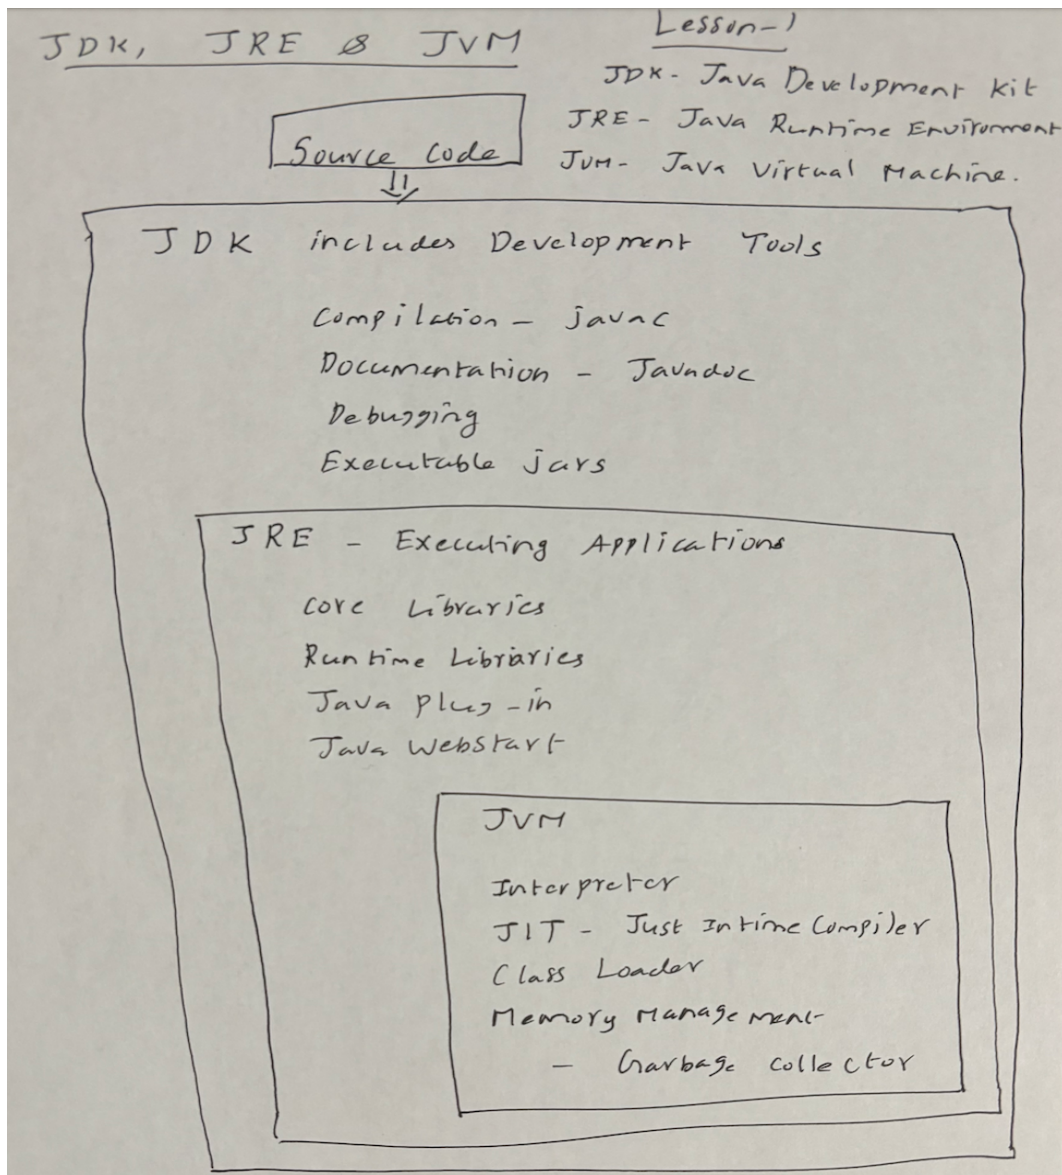 JDK, JRE & JVM
Lesson-1
JDK - Java Development Kit
JRE - Java Runtime Enviroment
JVM - Java Virtual Machine.
Source Code
JDK includes Development Tools
Compilation - javac
Documentation - Javadoc
Debugging
Executable jars
JRE - Executing Applications
Core Libraries
Runtime Libriaries
Java Plug-in
Java WebStart
JVM
Interpreter
JIT - Just In time Compiler
Class Loader
Memory Management
- Garbage Collector